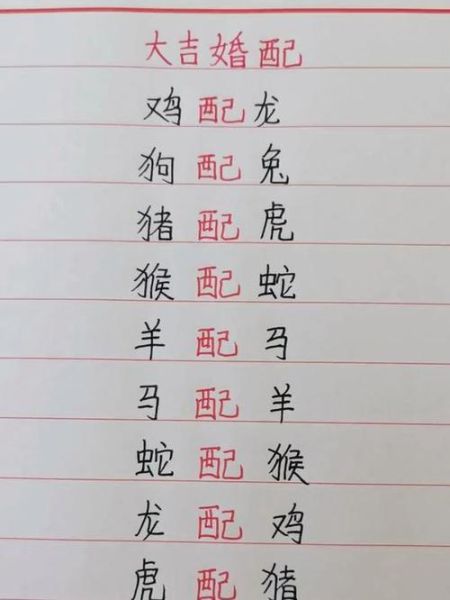 大吉婚配
鸡配龙
狗配兔
猪配虎
猴配蛇
羊配马
马配羊
蛇配猴
龙配鸡
虎配猪